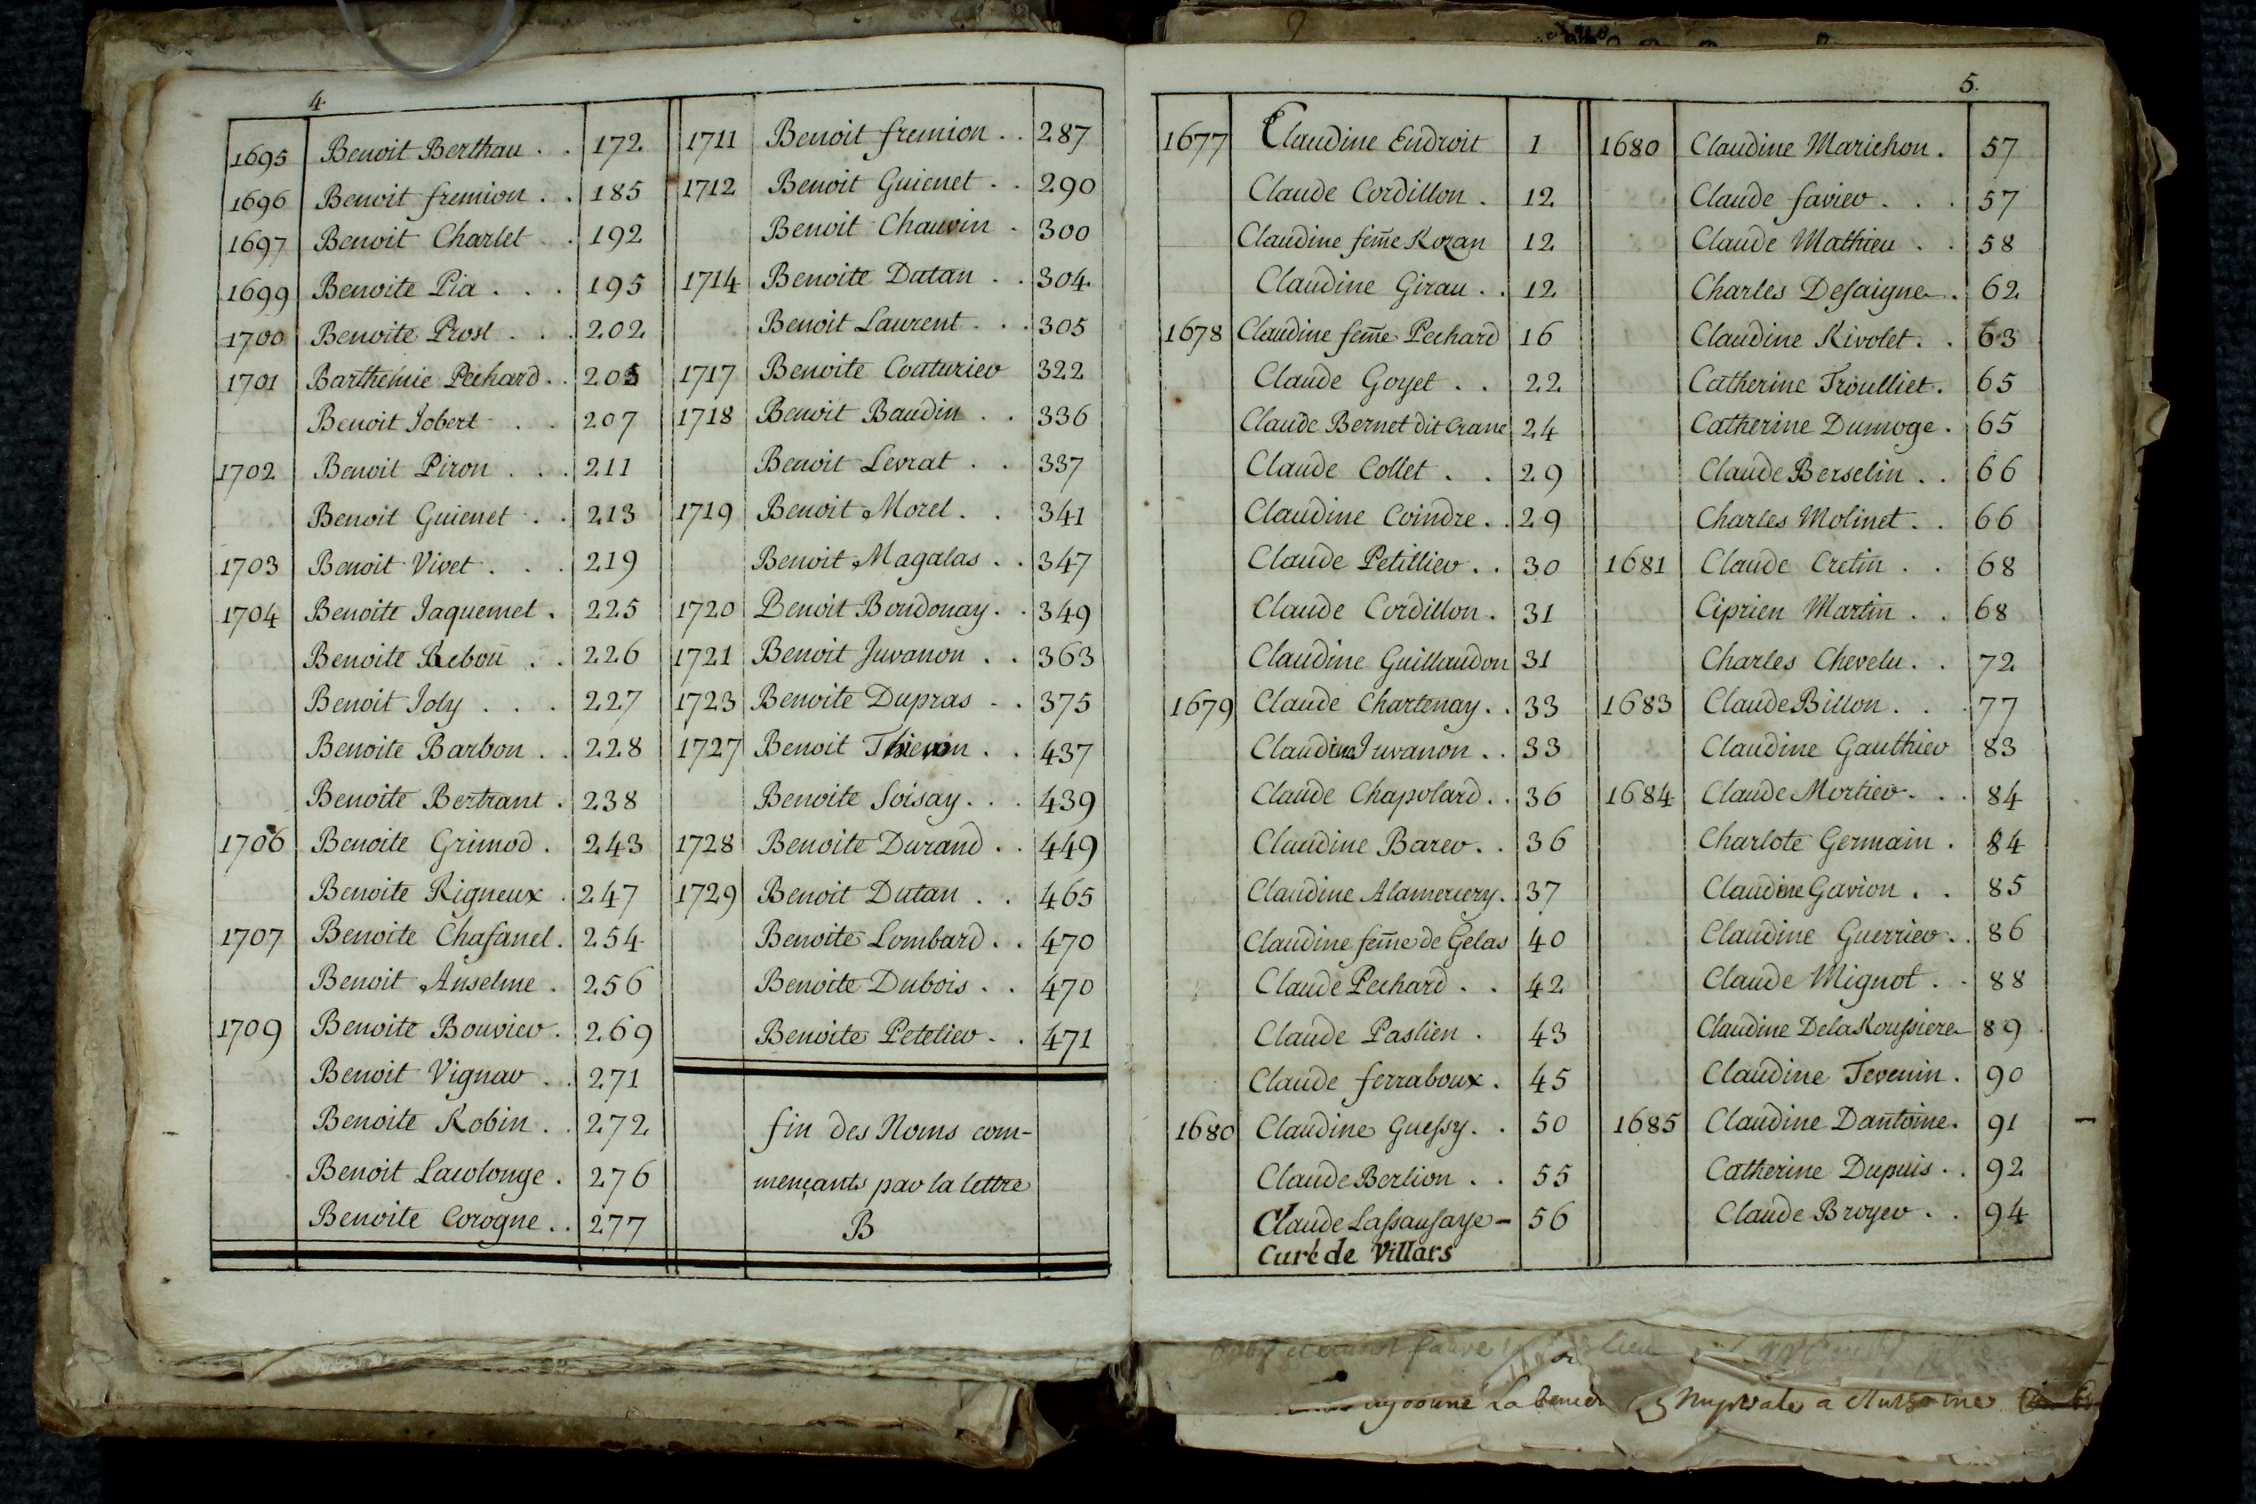 4
1695 Benoit Berthau . . 172
1696 Benoit fremion . . 185
1697 Benoit Charlet . . 192
1699 Benoite Pia . . . 195
1700 Benoite Prost . . . 202
1701 Barthemie Pechard . . 205
Benoit Jobert . . 207
1702 Benoit Piron . . . 211
Benoit Guienet . . 213
1703 Benoit Vivet . . . 219
1704 Benoite Jaquemet . 225
Benoite Rebou . . 226
Benoit Joly . . . 227
Benoite Barbon . . 228
Benoite Bertrant . 238
1706 Benoite Grimod . 243
Benoite Rigneux . 247
1707 Benoite Chasanel . 254
Benoit Anselme . 256
1709 Benoite Bouvier . 269
Benoit Vignar . . 271
Benoite Robin . . 272
Benoit Lacolonge . 276
Benoite Corogne . . 277
1711 Benoit fremion . . 287
1712 Benoit Guienet . . 290
Benoit Chauvin . 300
1714 Benoite Dutan . . 304
Benoit Laurent . . . 305
1717 Benoite Couturier 322
1718 Benoit Baudin . . 336
Benoit Levrat . . 337
1719 Benoit Morel . . 341
Benoit Magalas . . 347
1720 Benoit Boudonay . . 349
1721 Benoit Juvanon . . 363
1723 Benoite Dupras . . 375
1727 Benoit Thievon . . 437
Benoite Soisay . . . 439
1728 Benoite Durand . . 449
1729 Benoit Dutan . . 465
Benoite Lombard . . 470
Benoite Dubois . . 470
Benoite Petelier . . 471
fin des Noms com-
mençants par la lettre
B
5.
1677 Claudine Eudroit 1
Claude Cordillon . 12
Claudine fem̄e Rozan 12
Claudine Girau . . 12
1678 Claudine fem̄e Pechard 16
Claude Goyet . . 22
Claude Bernet dit Crane 24
Claude Collet . . 29
Claudine Coindre . . 29
Claude Petillier . . 30
Claude Cordillon . 31
Claudine Guillaudon 31
1679 Claude Chartenay . . 33
Claudine Juvanon . . 33
Claude Chapolard . . 36
Claudine Barer . . 36
Claudine Alamercery . 37
Claudine fem̄e de Gelas 40
Claude Pechard . . 42
Claude Paslien . 43
Claude ferraboux . 45
1680 Claudine Guessy . . 50
Claude Berlion . . 55
Claude Lassausaye - 56
Curé de Villars
1680 Claudine Marichon . 57
Claude favier . . . 57
Claude Mathieu . . 58
Charles Desaigne . 62
Claudine Rivolet . . 63
Catherine Troulliet . 65
Catherine Dumoge . 65
Claude Berselin . . 66
Charles Molinet . . 66
1681 Claude Cretin . . 68
Ciprien Martin . . 68
Charles Chevelu . . 72
1683 Claude Billon . . . 77
Claudine Gauthier 83
1684 Claude Mortier . . . 84
Charlote Germain . 84
Claudine Gavion . . 85
Claudine Guerrier . . 86
Claude Mignot . . 88
Claudine Dela Roussiere 89
Claudine Tevenin . 90
1685 Claudine Dantoine . 91
Catherine Dupuis . . 92
Claude Broyer . . 94